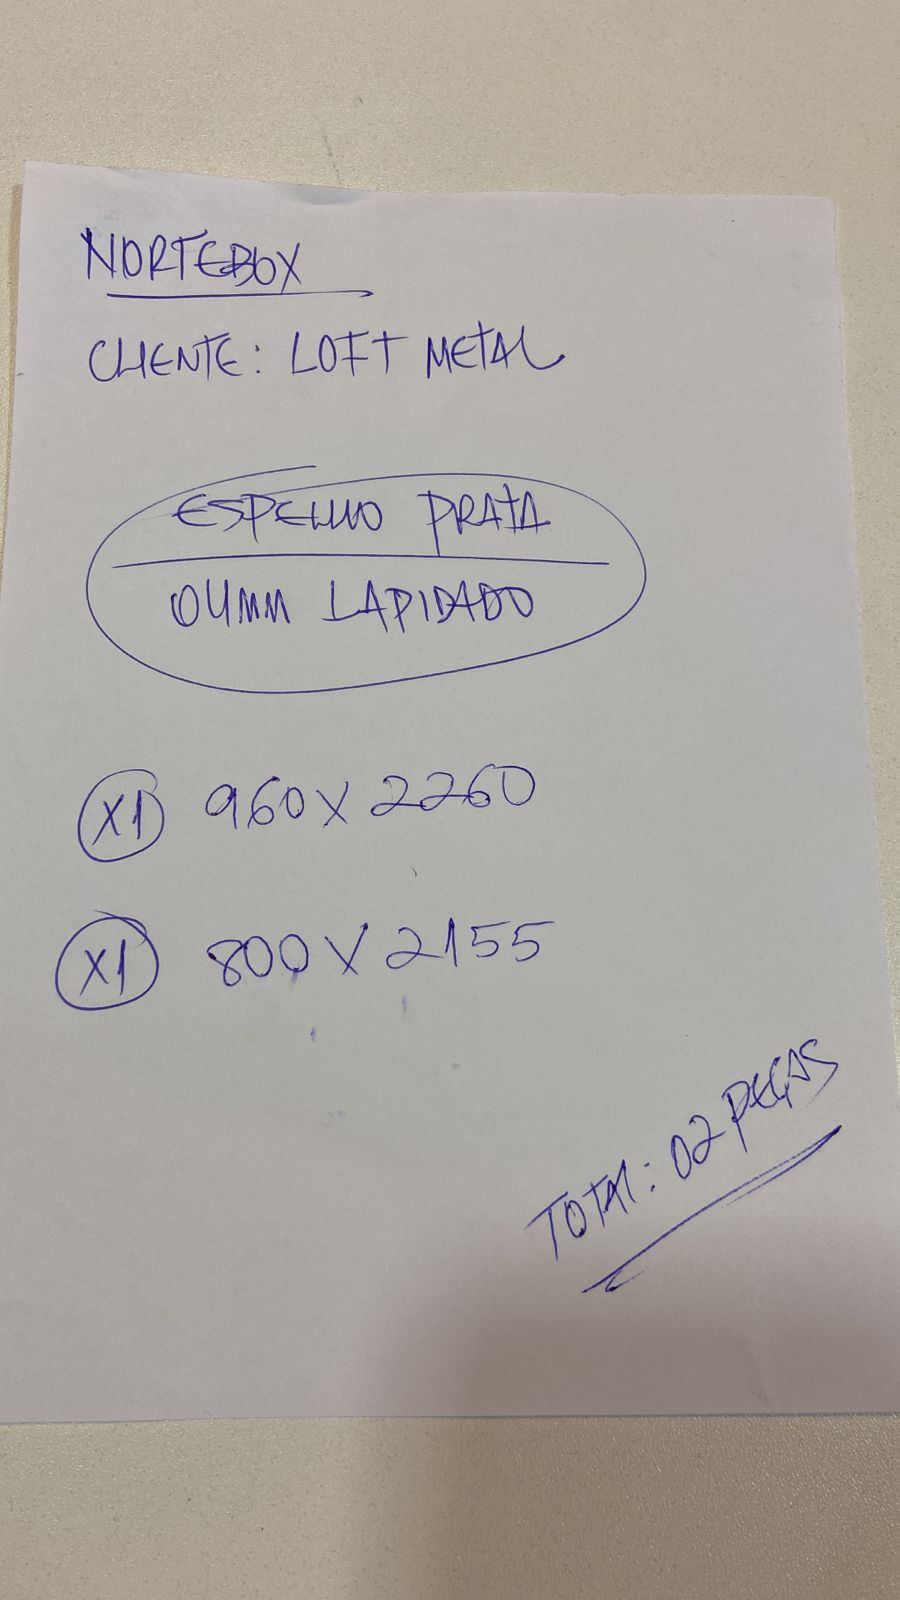 NORTEBOX
CLIENTE: LOFT METAL
ESPELHO PRATA
04MM LAPIDADO
X1 960 X 2260
X1 800 X 2155
TOTAL: 02 PEÇAS